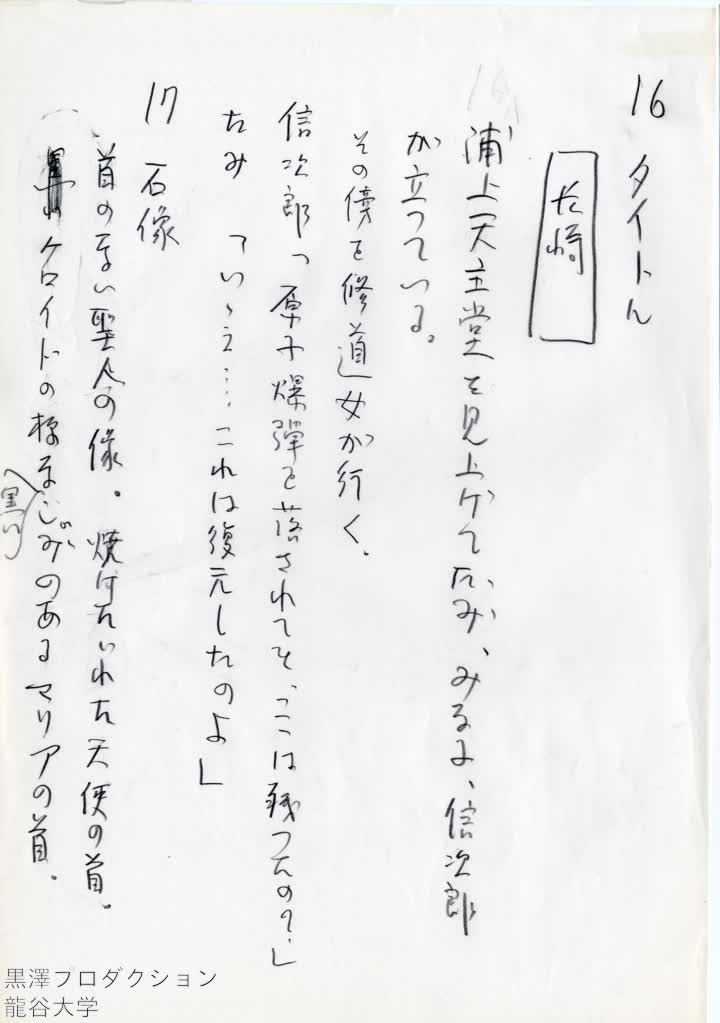 16 タイトル
長崎
浦上天主堂を見上げてたみ、みな子、信次郎
が立っている。
その傍を修道女が行く。
信次郎「原子爆弾を落されても、こゝは残ったの?」
たみ「いゝえ……これは復元したのよ」
17 石像
首のない聖人の像。焼けたゞれた天使の首。
ケロイドの様な黒いしみのあるマリアの首。
黒澤プロダクション
龍谷大学